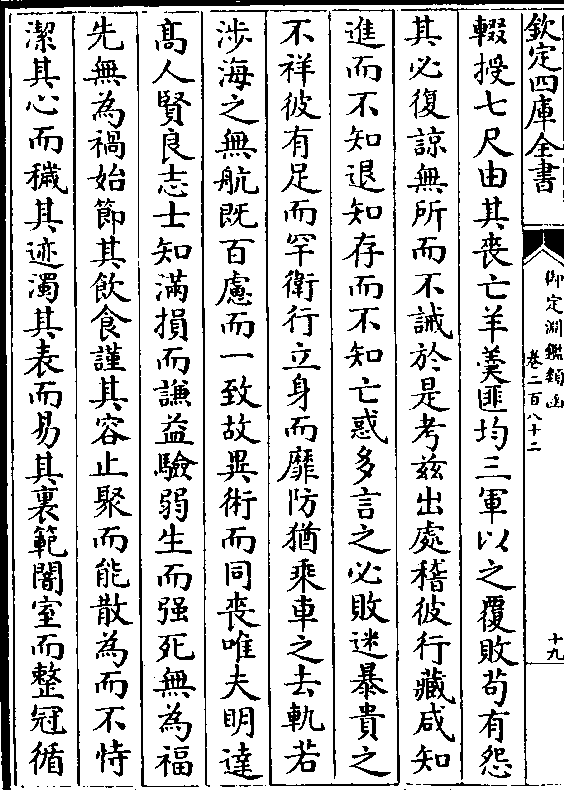 欽定四庫全書
御定淵鑑類函
卷二百八十二
十九
輟授七尺由其喪亡羊羹匪均三軍以之覆敗苟有怨
其必復諒無所而不誡於是考兹出處稽彼行藏咸知
進而不知退知存而不知亡惑多言之必敗迷暴貴之
不祥彼有足而罕衛行立身而靡防猶乘車之去軌若
涉海之無航既百慮而一致故異術而同喪唯夫明達
髙人賢良志士知滿損而謙益驗弱生而强死無為福
先無為禍始節其飲食謹其容止聚而能散為而不恃
潔其心而穢其迹濁其表而易其裏範闇室而整冠循